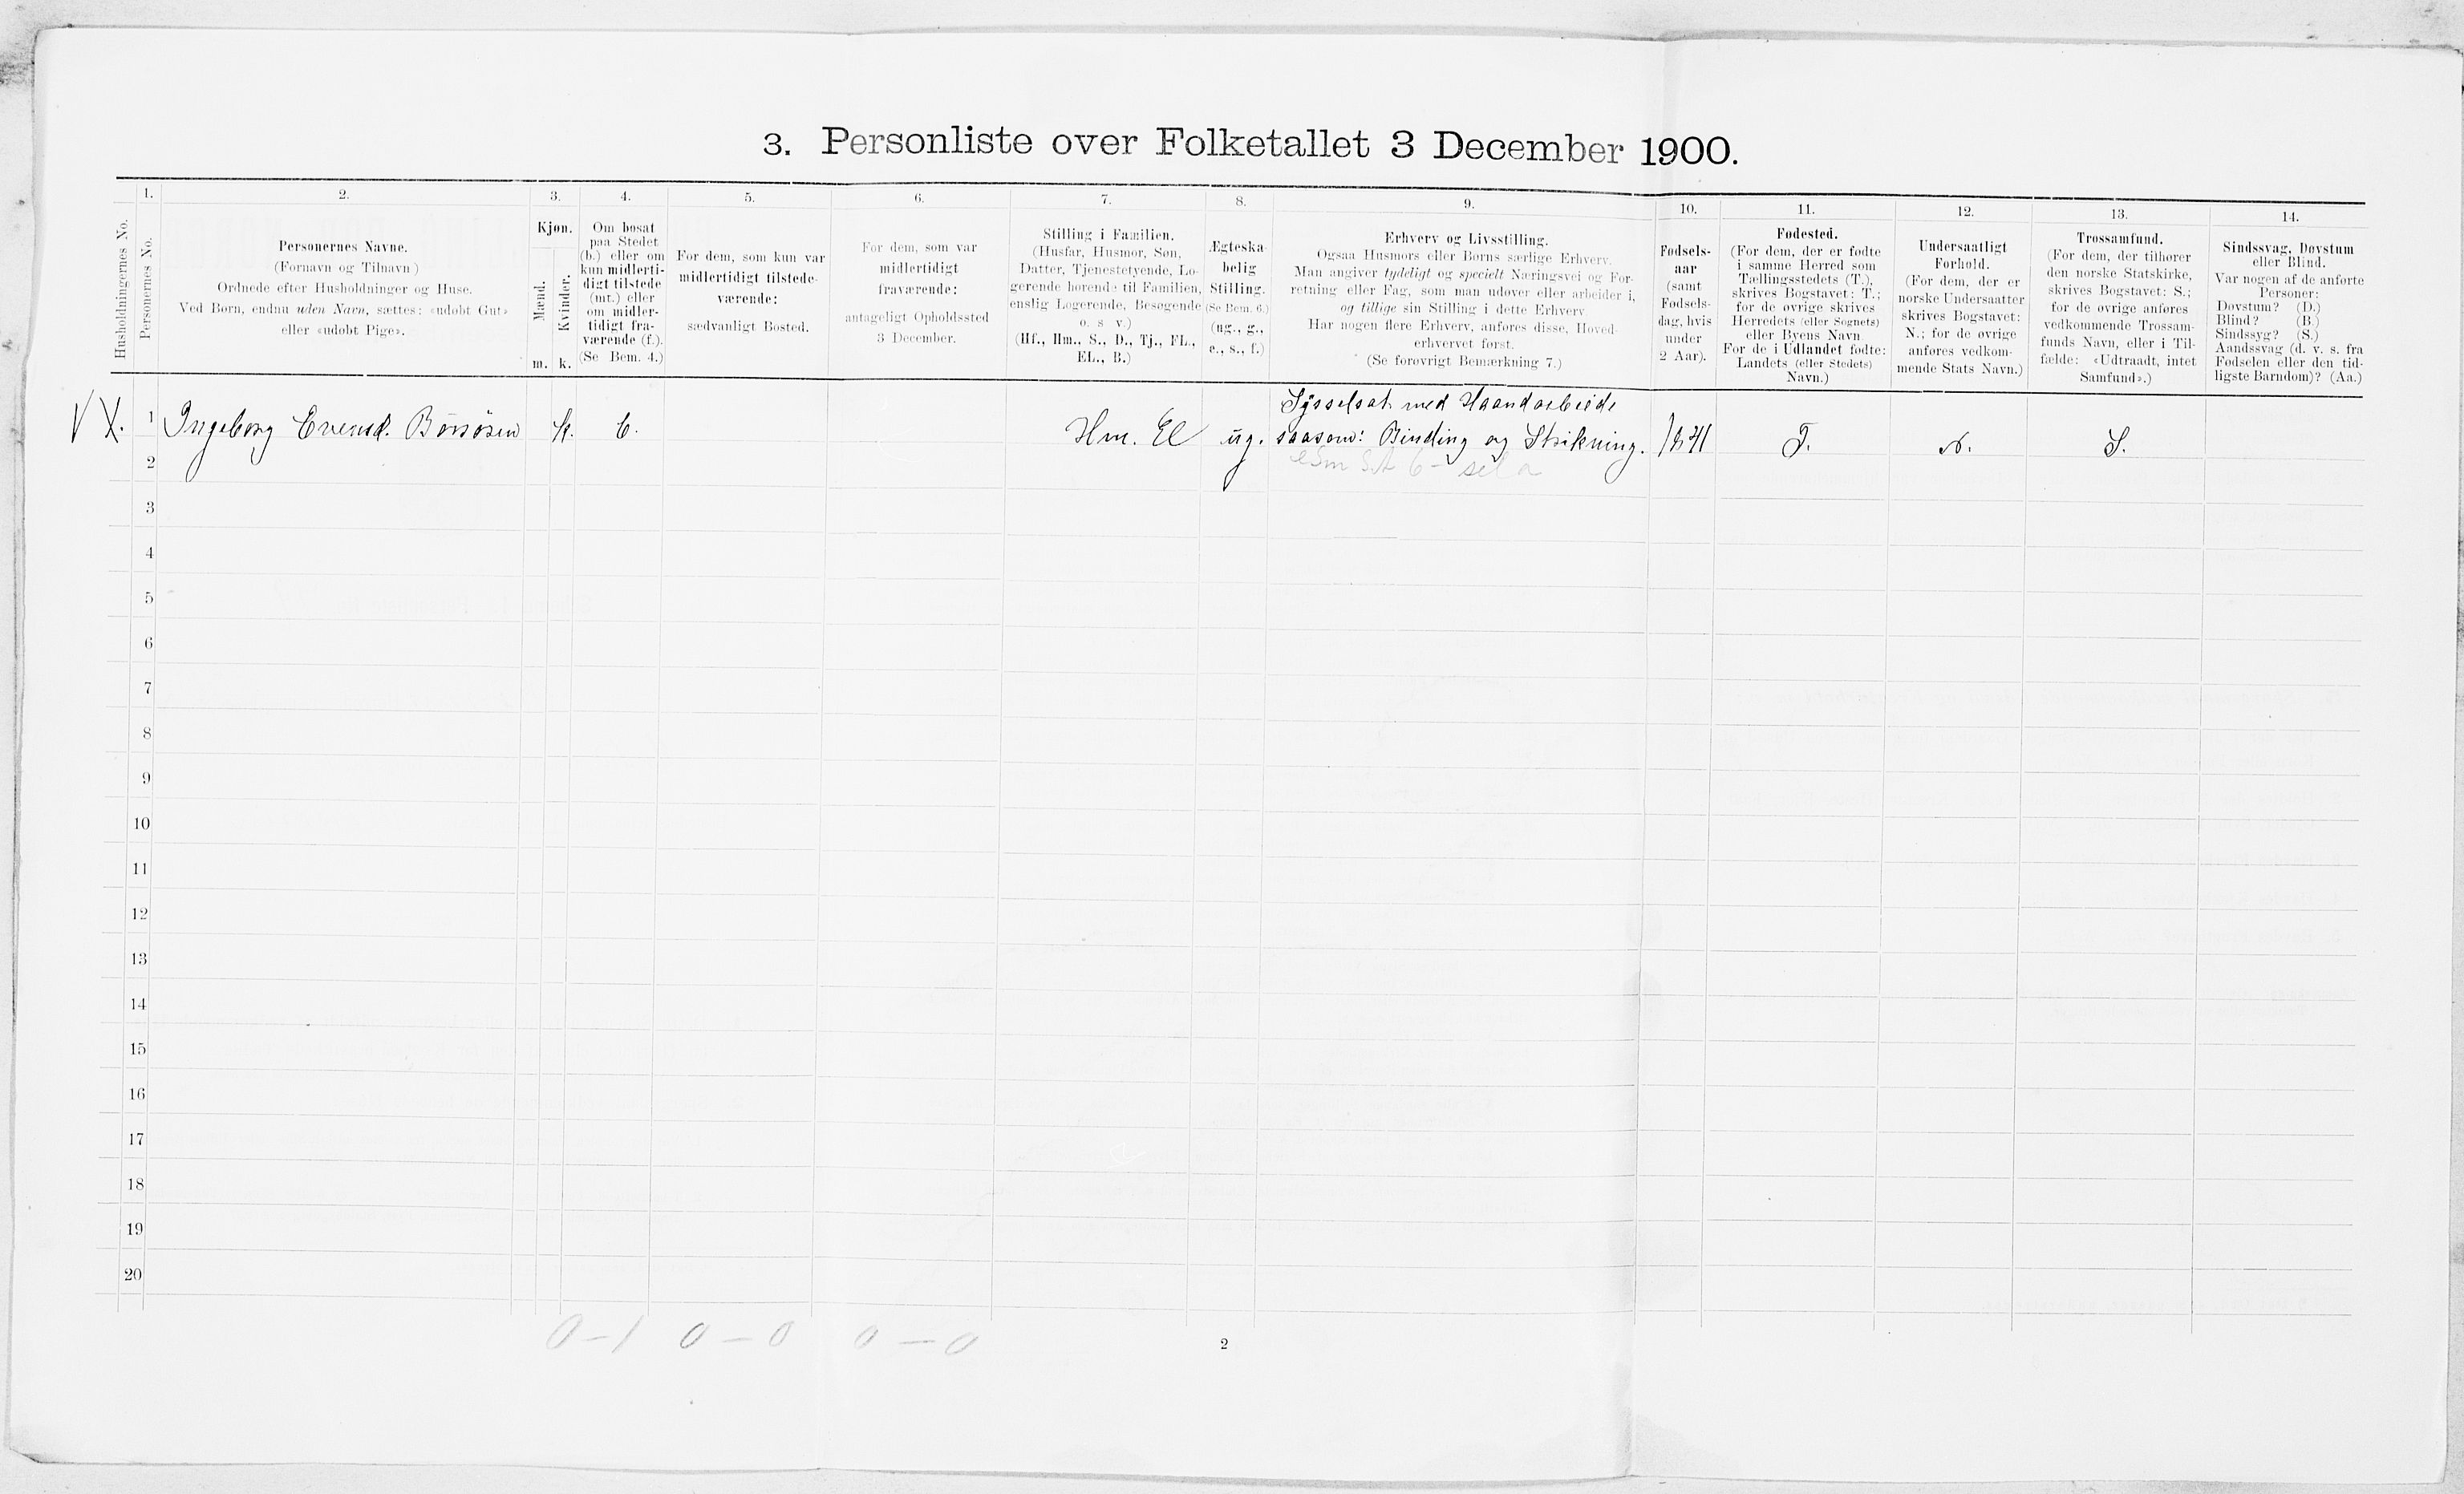 3. Personliste over Folketallet 3 December 1900.
Husholdningernes No.
1.
Personernes No.
2.
Personernes Navne.
(Fornavn og Tilnavn)
Ordnede efter Husholdninger og Huse.
Ved Børn, endnu uden Navn, sættes: «udøbt Gut»
eller «udøbt Pige».
3.
Kjøn.
Mænd.
Kvinder.
m. k.
4.
Om bosat
paa Stedet
(b.) eller om
kun midlerti-
digt tilstede
(mt.) eller
om midler-
tidigt fra-
værende (f.).
(Se Bem. 4.)
5.
For dem, som kun var
midlertidigt tilstede-
værende:
sædvanligt Bosted.
6.
For dem, som var
midlertidigt
fraværende:
antageligt Opholdssted
3 December.
7.
Stilling i Familien.
(Husfar, Husmor, Søn,
Datter, Tjenestetyende, Lo-
gerende hørende til Familien,
enslig Logerende, Besøgende
o. s. v.)
(Hf., Hm., S., D., Tj., FL.,
EL., B.)
8.
Ægteska-
belig
Stilling.
(Se Bem. 6.)
(ug., g.,
e., s., f.)
9.
Erhverv og Livsstilling.
Ogsaa Husmors eller Børns særlige Erhverv.
Man angiver tydeligt og specielt Næringsvei og For-
retning eller Fag, som man udøver eller arbeider i,
og tillige sin Stilling i dette Erhverv
Har nogen flere Erhverv, anføres disse, Hoved-
erhvervet først.
(Se forøvrigt Bemærkning 7.)
10.
Fødsels-
aar
(samt
Fødsels-
dag, hvis
under
2 Aar).
11.
Fødested.
(For dem, der er fødte
i samme Herred som
Tællingsstedets (T.),
skrives Bogstavet: T.;
for de øvrige skrives
Herredets (eller Sognets)
eller Byens Navn.
For de i Udlandet fødte:
Landets (eller Stedets)
Navn.)
12.
Undersaatligt
Forhold.
(For dem, der er
norske Undersaatter
skrives Bogstavet:
N.; for de øvrige
anføres vedkom-
mende Stats Navn.)
13.
Trossamfund.
(For dem, der tilhører
den norske Statskirke,
skrives Bogstavet: S.;
for de øvrige anføres
vedkommende Trossam-
funds Navn, eller i Til-
fælde: «Udtraadt, intet
Samfund».)
14.
Sindssvag, Døvstum
eller Blind.
Var nogen af de anførte
Personer:
Døvstum? (D.)
Blind? (B.)
Sindssyg? (S.)
Aandssvag (d. v. s. fra
Fødselen eller den tid-
ligste Barndom)? (Aa.)
Sysselsat med Haandarbeide
V X. 1 Ingeborg Evensd. Börsösen k. b. Hm. El ug. saasom: Binding og Strikning. 1841 T. N. S.
2
3
4
5
6
7
8
9
10
11
12
13
14
15
16
17
18
19
20
0-1 0-0 0-0
2